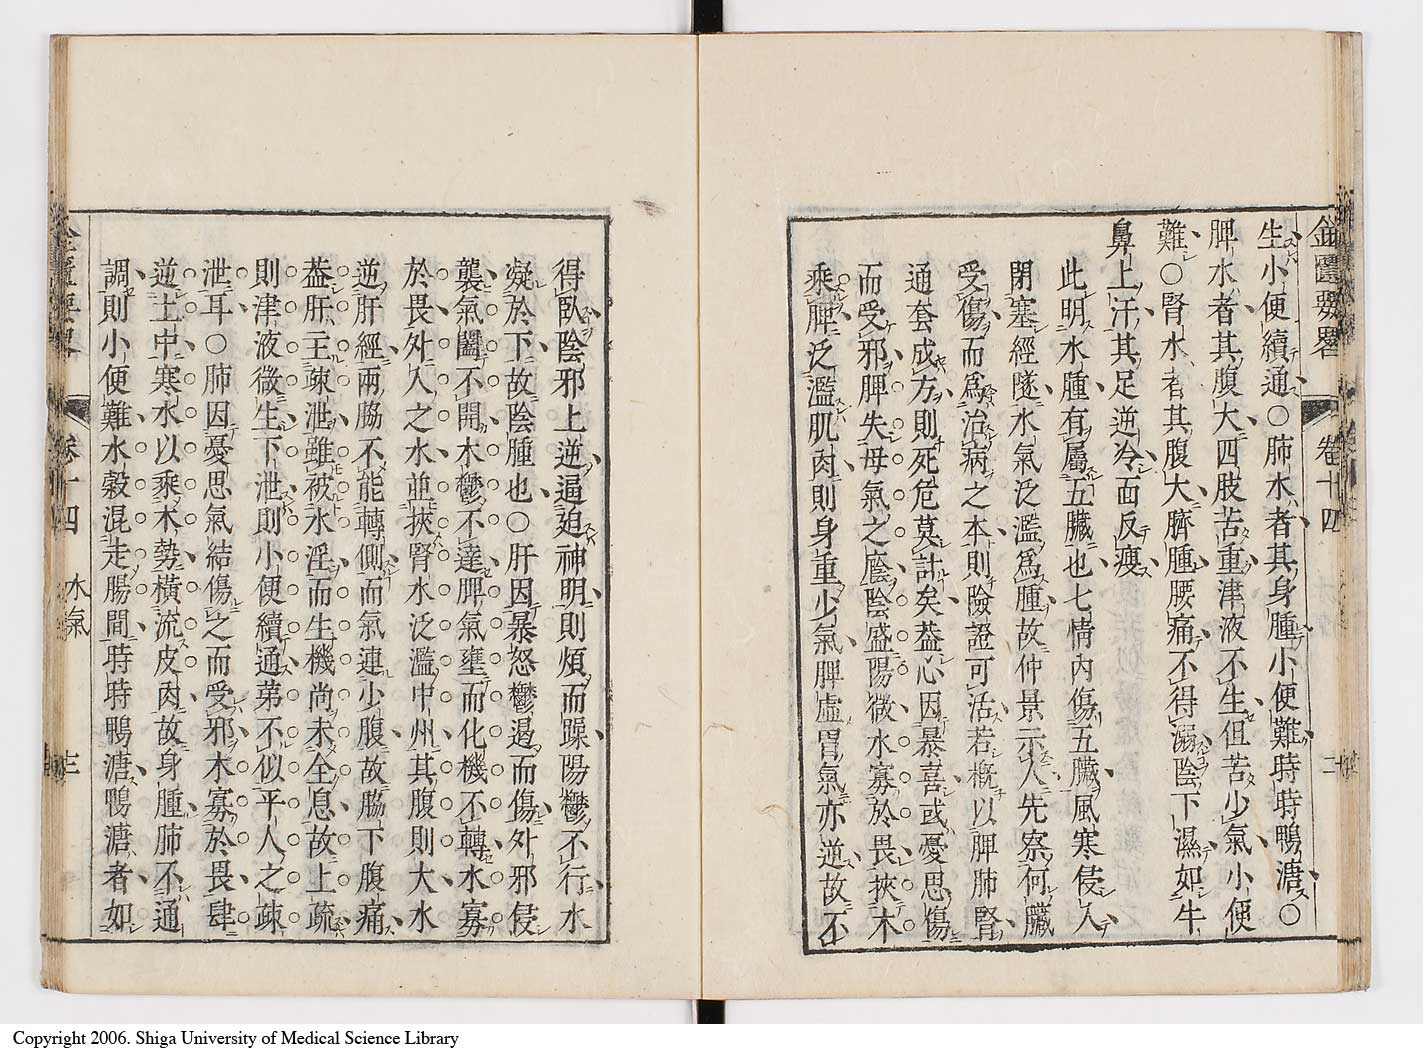 金匱要畧 卷十四 二
生小便續通○肺水者其身腫小便難時時鴨溏○
脾水者其腹大四肢苦重津液不生但苦少氣小便
難○腎水者其腹大臍腫腰痛不得溺陰下濕如牛
鼻上汗其足逆冷面反瘦
此明水腫有屬五臟也七情內傷五臟風寒侵人
閉塞經隧水氣泛濫爲腫故仲景示人先察何臟
受傷而爲治病之本則險證可活若概以脾肺腎
通套成方則死危莫計矣葢心因暴喜或憂思傷
而受邪脾失母氣之廕陰盛陽微水寡於畏挾木
乘脾泛濫肌肉則身重少氣脾虛胃氣亦逆故不
得臥陰邪上逆逼迫神明則煩而躁陽鬱不行水
凝於下故陰腫也○肝因暴怒鬱遏而傷外邪侵
襲氣闔不開木鬱不達脾氣壅而化機不轉水寡
於畏外入之水並挾腎水泛濫中州其腹則大水
逆肝經兩脇不能轉側而氣連少腹故脇下腹痛
葢肝主疎泄雖被水淫而生機尚未全息故上疏
則津液微生下泄則小便續通第不似平人之疎
泄耳○肺因憂思氣結傷之而受邪木寡於畏肆
逆土中寒水以乘木勢橫流皮肉故身腫肺不通
調則小便難水穀混走腸間時時鴨溏鴨溏者如
金匱要畧 卷十四 水氣 三
Copyright 2006. Shiga University of Medical Science Library